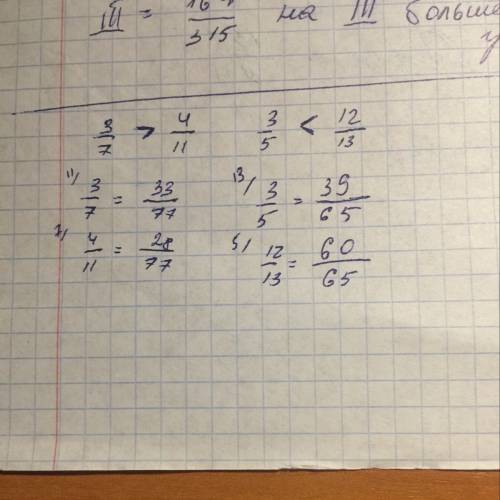 III = 16/315 на III больше
3/7 > 4/11    3/5 < 12/13
11/ 3/7 = 33/77    13/ 3/5 = 39/65
7/ 4/11 = 28/77    5/ 12/13 = 60/65